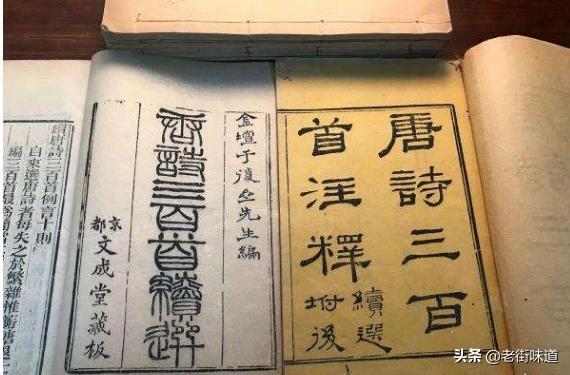 唐詩三百
首注釋
續選
坿後
金壇于復亝先生編
唐詩三百首續選
京都
文成堂藏板
續唐詩三百首例言十則
自來選唐詩者每失之於繁雜惟蘅塘退
編三百首最為簡
头条 @老街味道